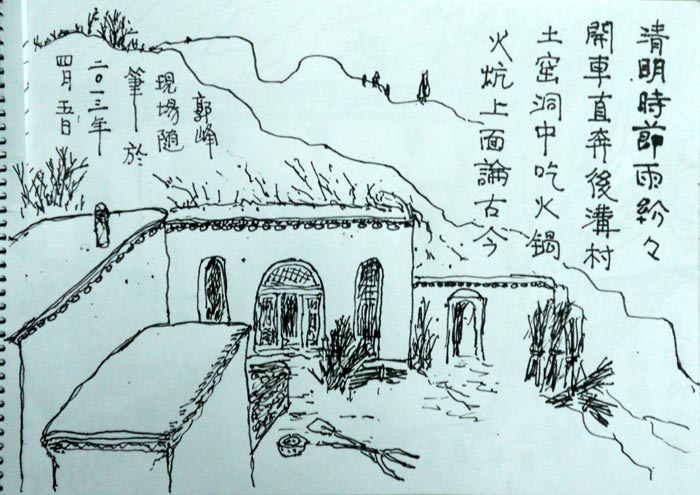 清明時節雨紛々
開車直奔後溝村
土窑洞中吃火鍋
火炕上面論古今
郭峰
現場隨
筆於
二〇一三年
四月五日